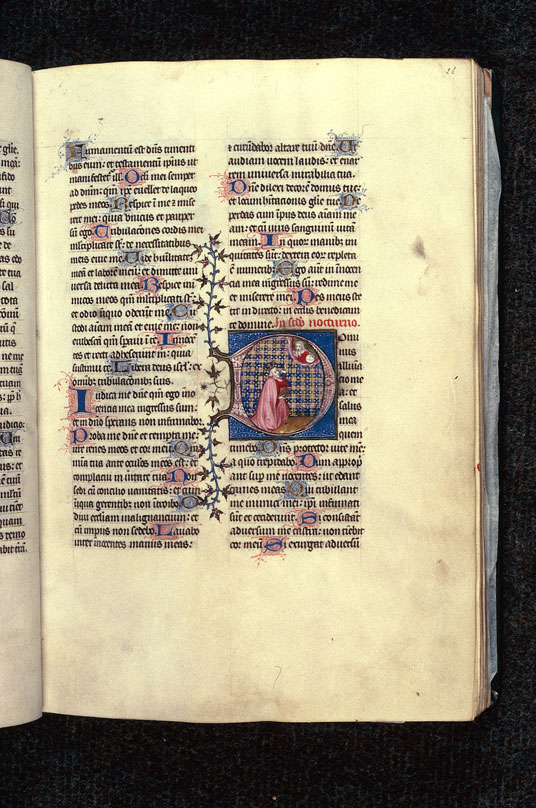 26
Firmamentum est dñs timenti
bus eum: et testamentum ipsius ut
manifestet ill'. Oculi mei semper
ad dñm: qm̃ ip̃e euellet de laqueo
pedes meos. Respice ĩ me ⁊ mise
rere mei: quia unicus et pauper
sũ ego. Tribulationes cordis mei
multiplicate st̃: de necessitatibus
meis erue me. Vide humilitatẽ
meã et laborẽ meũ: et dimitte uni
uersa delicta mea. Respice ini
micos meos qm̃ multiplicati st̃:
et odio iniquo oderunt me. Cu
stodi aĩam meã et erue me: non
erubescã qm̃ speraui ĩ te. Innocẽ
tes et recti adheserunt m̃: quia
sustinui te. Libera deus isrł: ex
omĩb; tribulationib; suis.
Iudica me dñe qm̃ ego ĩno
centia mea ingressus sum:
et ĩ dño sperans non infirmabor.
Proba me dñe et tempta me:
ure renes meos et cor meũ. Qm̃
mĩa tua ante oculos meos est: et
complacui in ueritate tua. Non
sedi cũ concilio uanitatis: et cum
iniqua gerentib; non introibo. O
diui eccliam malignantium: et
cũ impiis non sedebo. Lauabo
inter innocentes manus meas:
et circũdabo altare tuũ dñe. Ut
audiam uocem laudis: et enar
rem uniuersa mirabilia tua.
Dñe dilexi decorẽ domus tue:
et locum habitationis glorie tue. Ne
perdas cum ĩpiis deus aĩam me
am: et cũ uiris sanguinũ uitã
meam. In quor̃ manib; ini
quitates sũt: dextera eor̃ repleta
ẽ munerib;. Ego aũt in ĩnocen
tia mea ingressus sũ: redime me
et miserere mei. Pes meus ste
tit in directo: in eccliis benedicam
te domine. In scd̃o nocturno.
Domi
nus
illumi
natio
mea:
et
salus
mea
quem
timebo. Dñs protector uite mee:
a quo trepidabo. Dum approp
iant sup̃ me nocentes: ut edant
carnes meas. Qui tribulant
me inimici mei: ipi infirmati
sũt et ceciderunt. Si consistant
aduersum me castra: non timebit
cor meũ. Si exurgat aduersũ